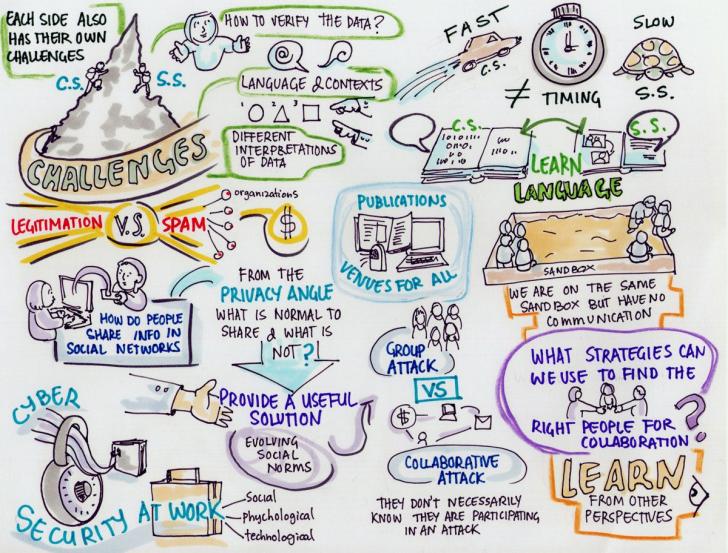 EACH SIDE ALSO
HAS THEIR OWN
CHALLENGES
C.S.
S.S.
CHALLENGES
HOW TO VERIFY THE DATA?
LANGUAGE & CONTEXTS
DIFFERENT
INTERPRETATIONS
OF DATA
FAST
C.S.
≠ TIMING
SLOW
S.S.
C.S.
S.S.
LEARN
LANGUAGE
LEGITIMATION V.S. SPAM
organizations
$
PUBLICATIONS
VENUES FOR ALL
SANDBOX
WE ARE ON THE SAME
SANDBOX BUT HAVE NO
COMMUNICATION
HOW DO PEOPLE
SHARE INFO IN
SOCIAL NETWORKS
FROM THE
PRIVACY ANGLE
WHAT IS NORMAL TO
SHARE & WHAT IS
NOT?
PROVIDE A USEFUL
SOLUTION
EVOLVING
SOCIAL
NORMS
GROUP
ATTACK
VS
$
COLLABORATIVE
ATTACK
THEY DON'T NECESSARILY
KNOW THEY ARE PARTICIPATING
IN AN ATTACK
WHAT STRATEGIES CAN
WE USE TO FIND THE
RIGHT PEOPLE FOR
COLLABORATION ?
LEARN
FROM OTHER
PERSPECTIVES
CYBER
SECURITY AT WORK
Social
phychological
technological